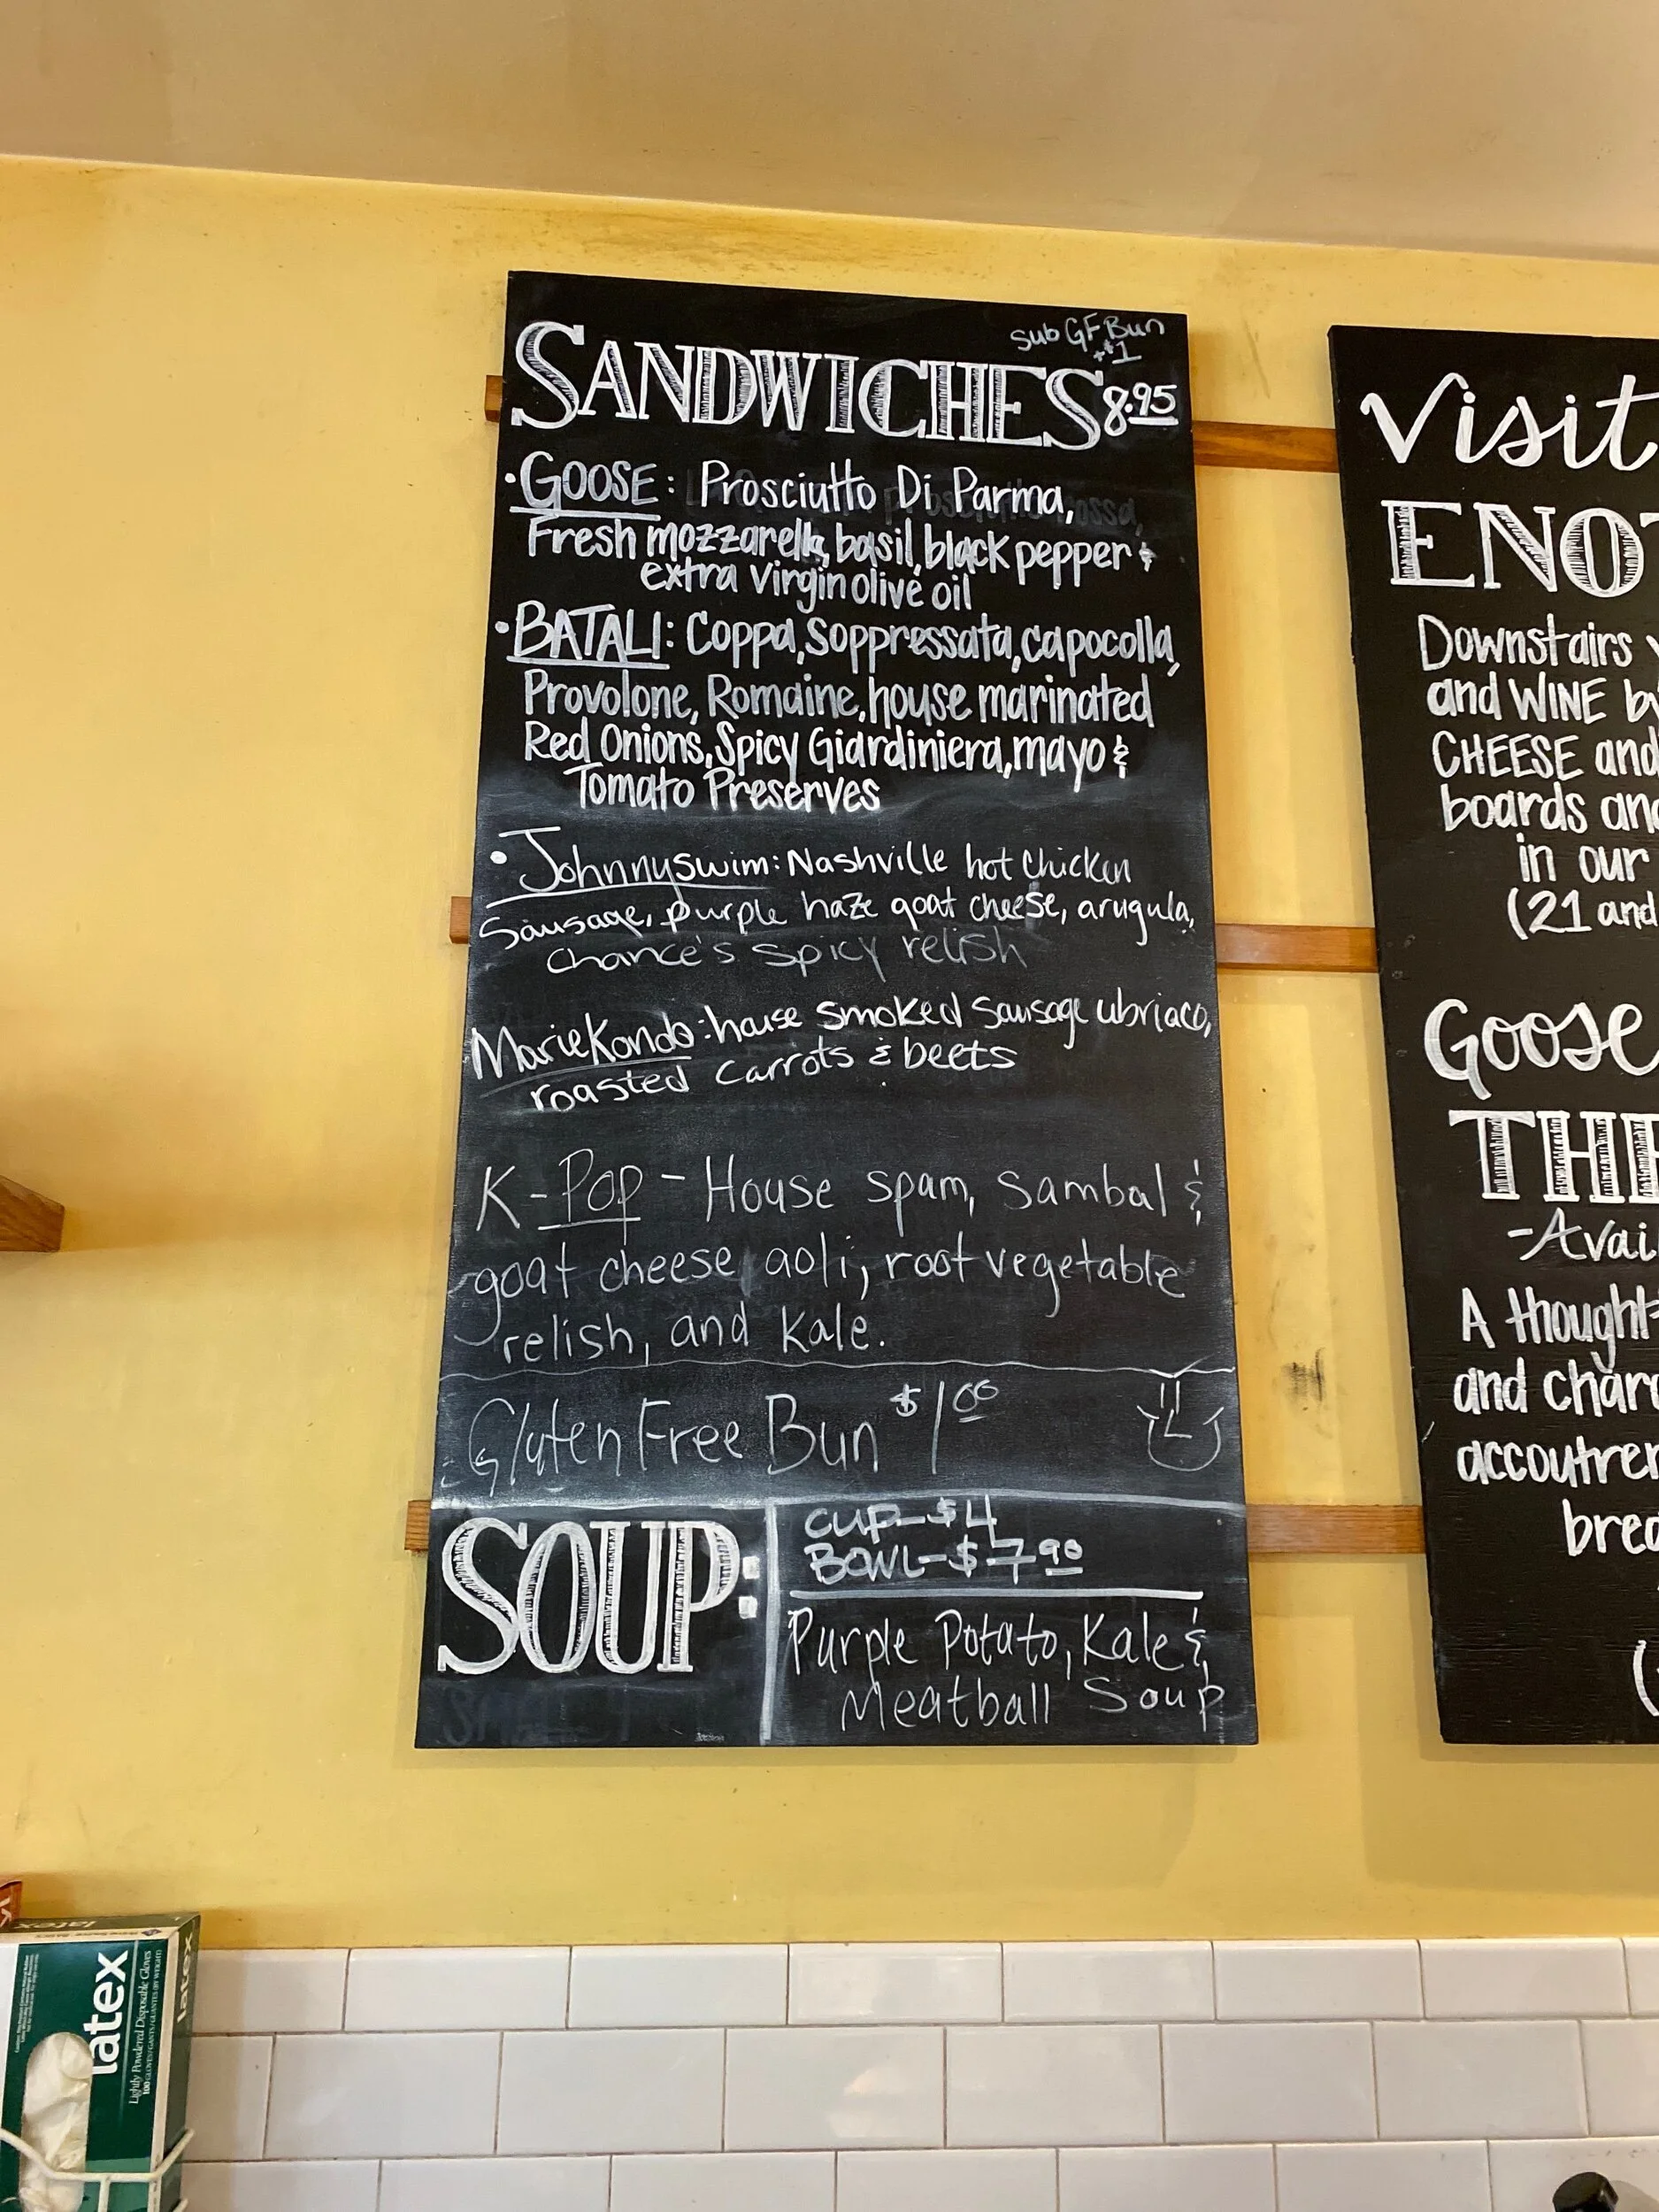 Sub GF Bun
+$1
SANDWICHES 8.95
• GOOSE: Prosciutto Di Parma,
Fresh mozzarella, basil, black pepper &
extra virgin olive oil
• BATALI: Coppa, Soppressata, capocolla,
Provolone, Romaine, house marinated
Red Onions, Spicy Giardiniera, mayo &
Tomato Preserves
• Johnnyswim: Nashville hot chicken
Sausage, purple haze goat cheese, arugula,
Chance's spicy relish
MarieKondo: house smoked sausage ubriaco,
roasted carrots & beets
K-Pop - House spam, sambal &
goat cheese aoli, root vegetable
relish, and kale.
Gluten Free Bun $1.00
SOUP:
CUP-$4
BOWL-$7.90
Purple Potato, Kale &
Meatball Soup
Visit
Downstairs
and WINE
CHEESE and
boards
in our
(21 and
Goose
A
and
latex
latex
latex
Lightly Powdered Disposable Gloves